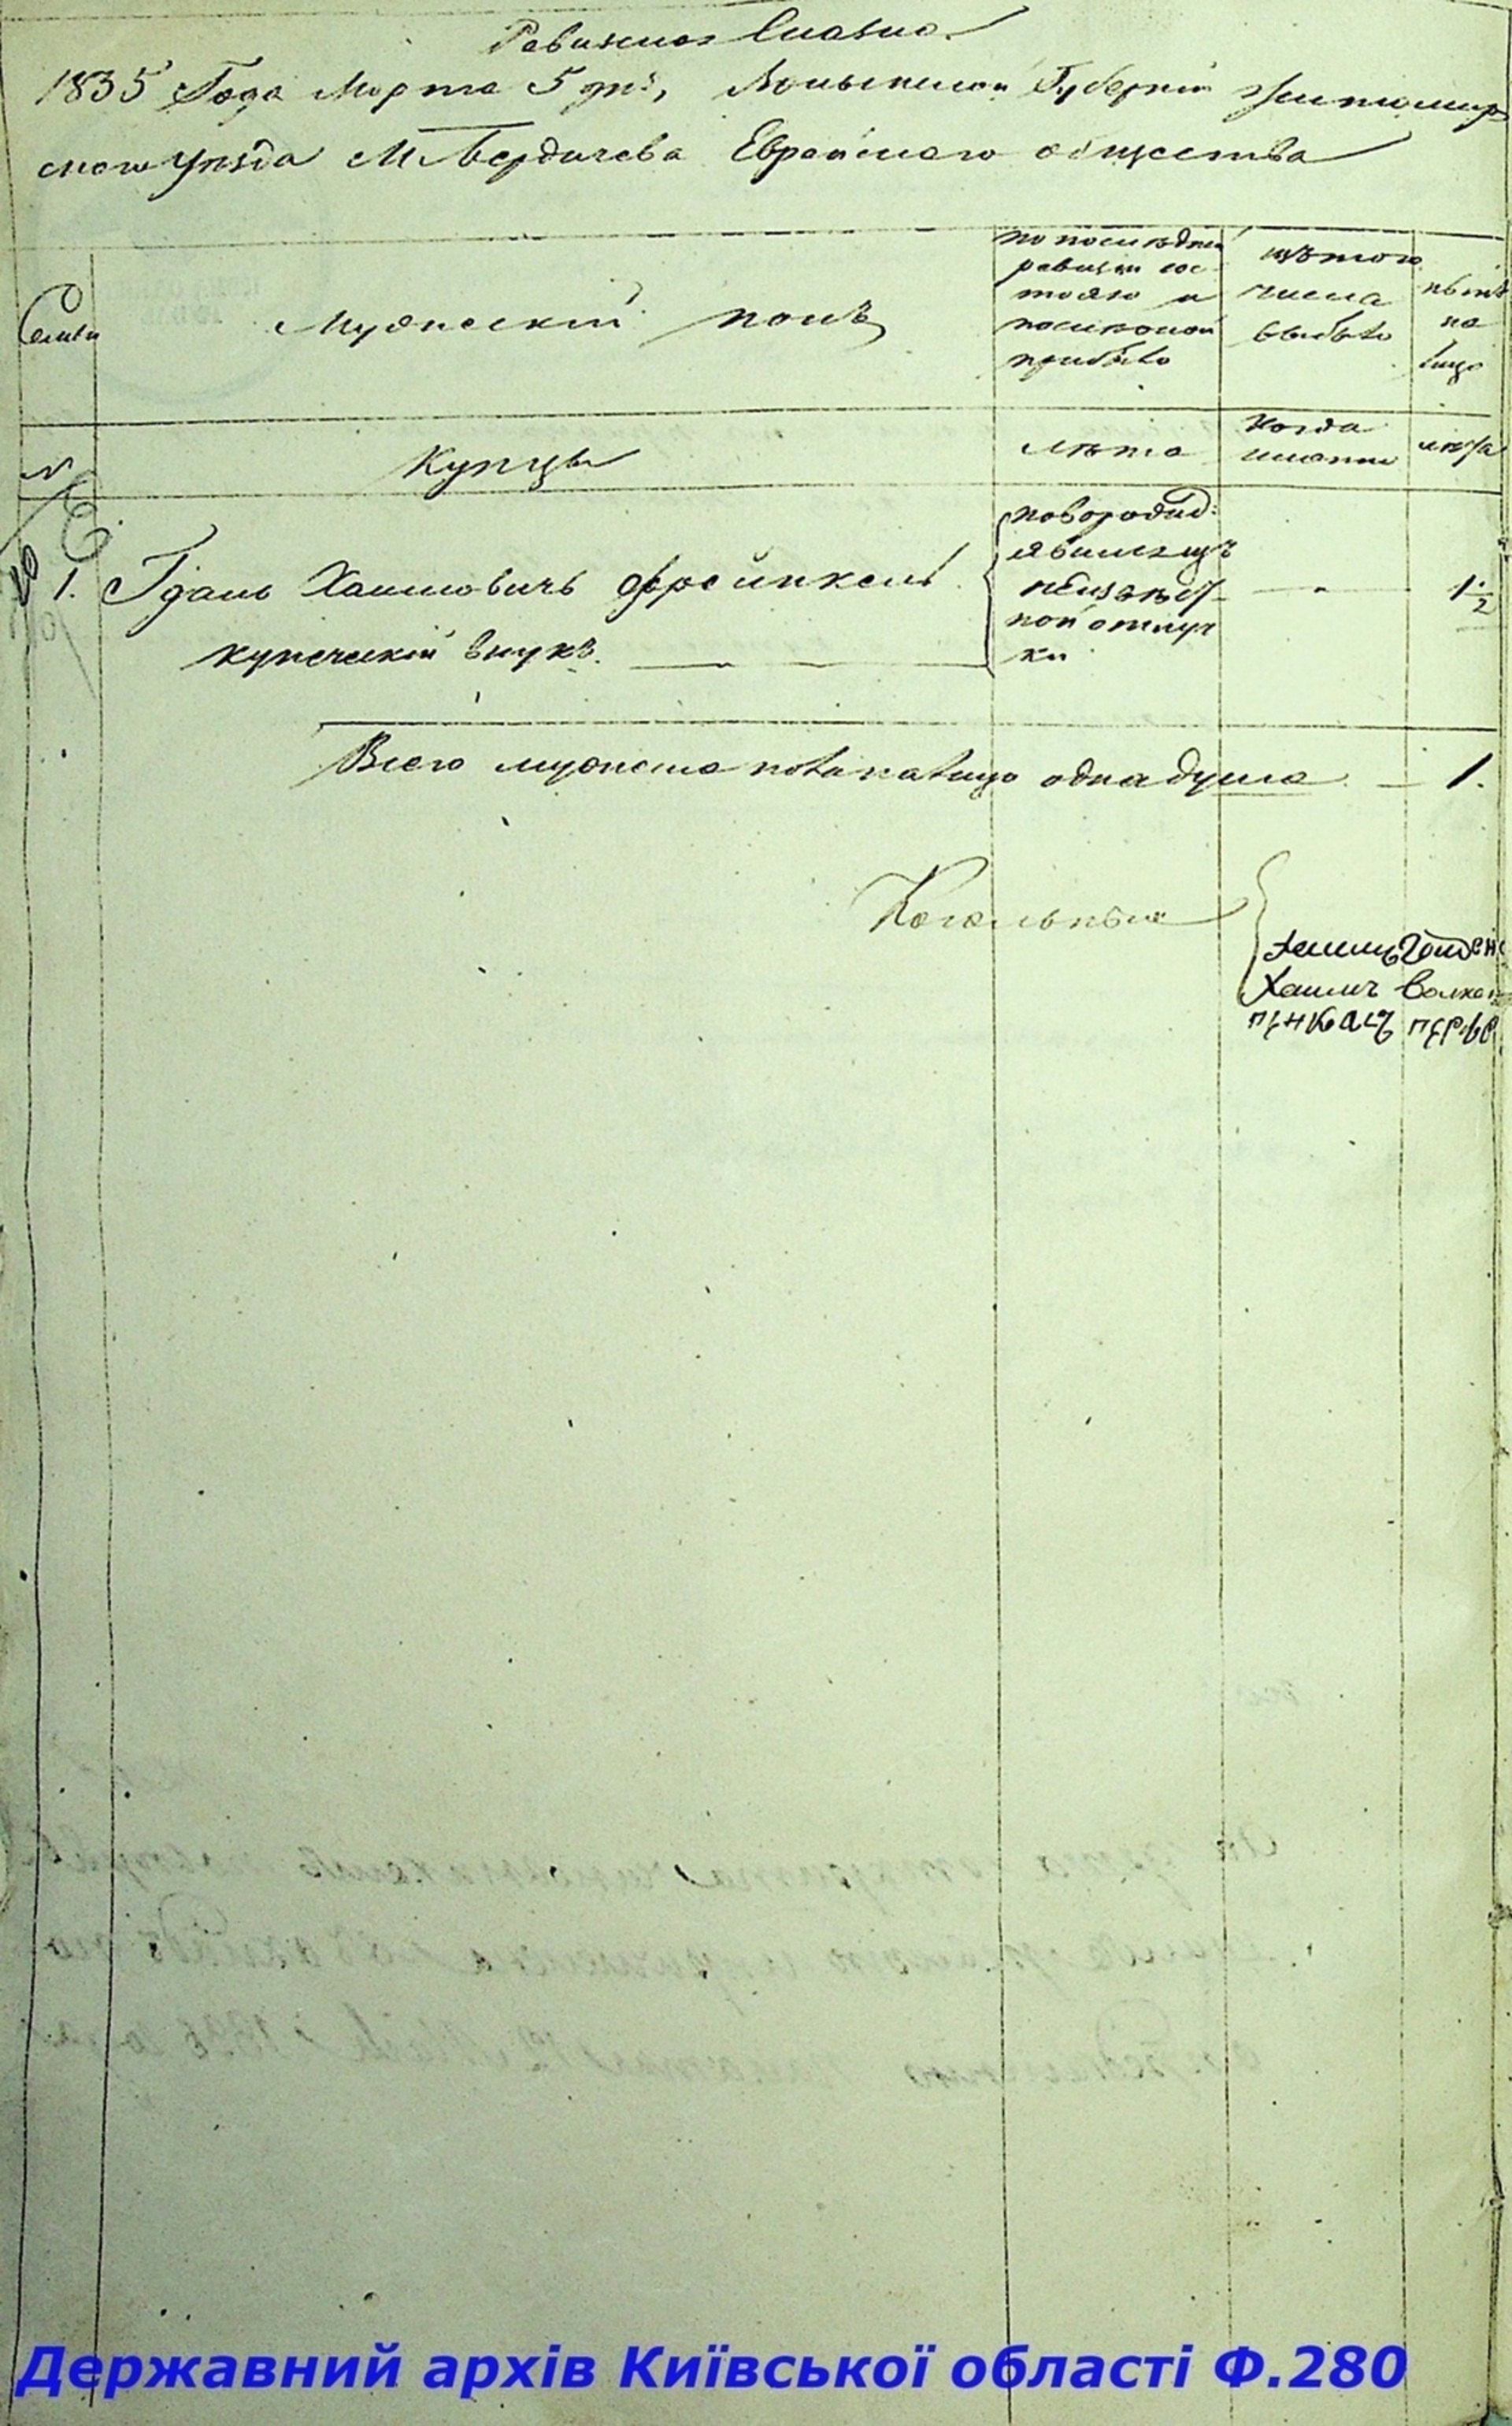 Ревизская Сказка
1835 Года Марта 5 дня, Волынской Губернии Житомир
скаго Уезда М Бердичева Еврейскаго общества
Семьи
Мужескій полъ
по последней
ревизіи сос
тояло и
после оной
прибыло
изъ того
числа
выбыло
ныне
на
лицо
№
Купцы
лета
Когда
именно
лета
1. Гдаль Хаимовичъ Френкель
купеческій внукъ.
новорожд:
явился изъ
неизвест
ной отлуч
ки
1½
Всего мужеска пола налицо одна душа — 1.
Кагальные
Хаимъ Волко
Пинкасъ
Державний архів Київської області Ф.280